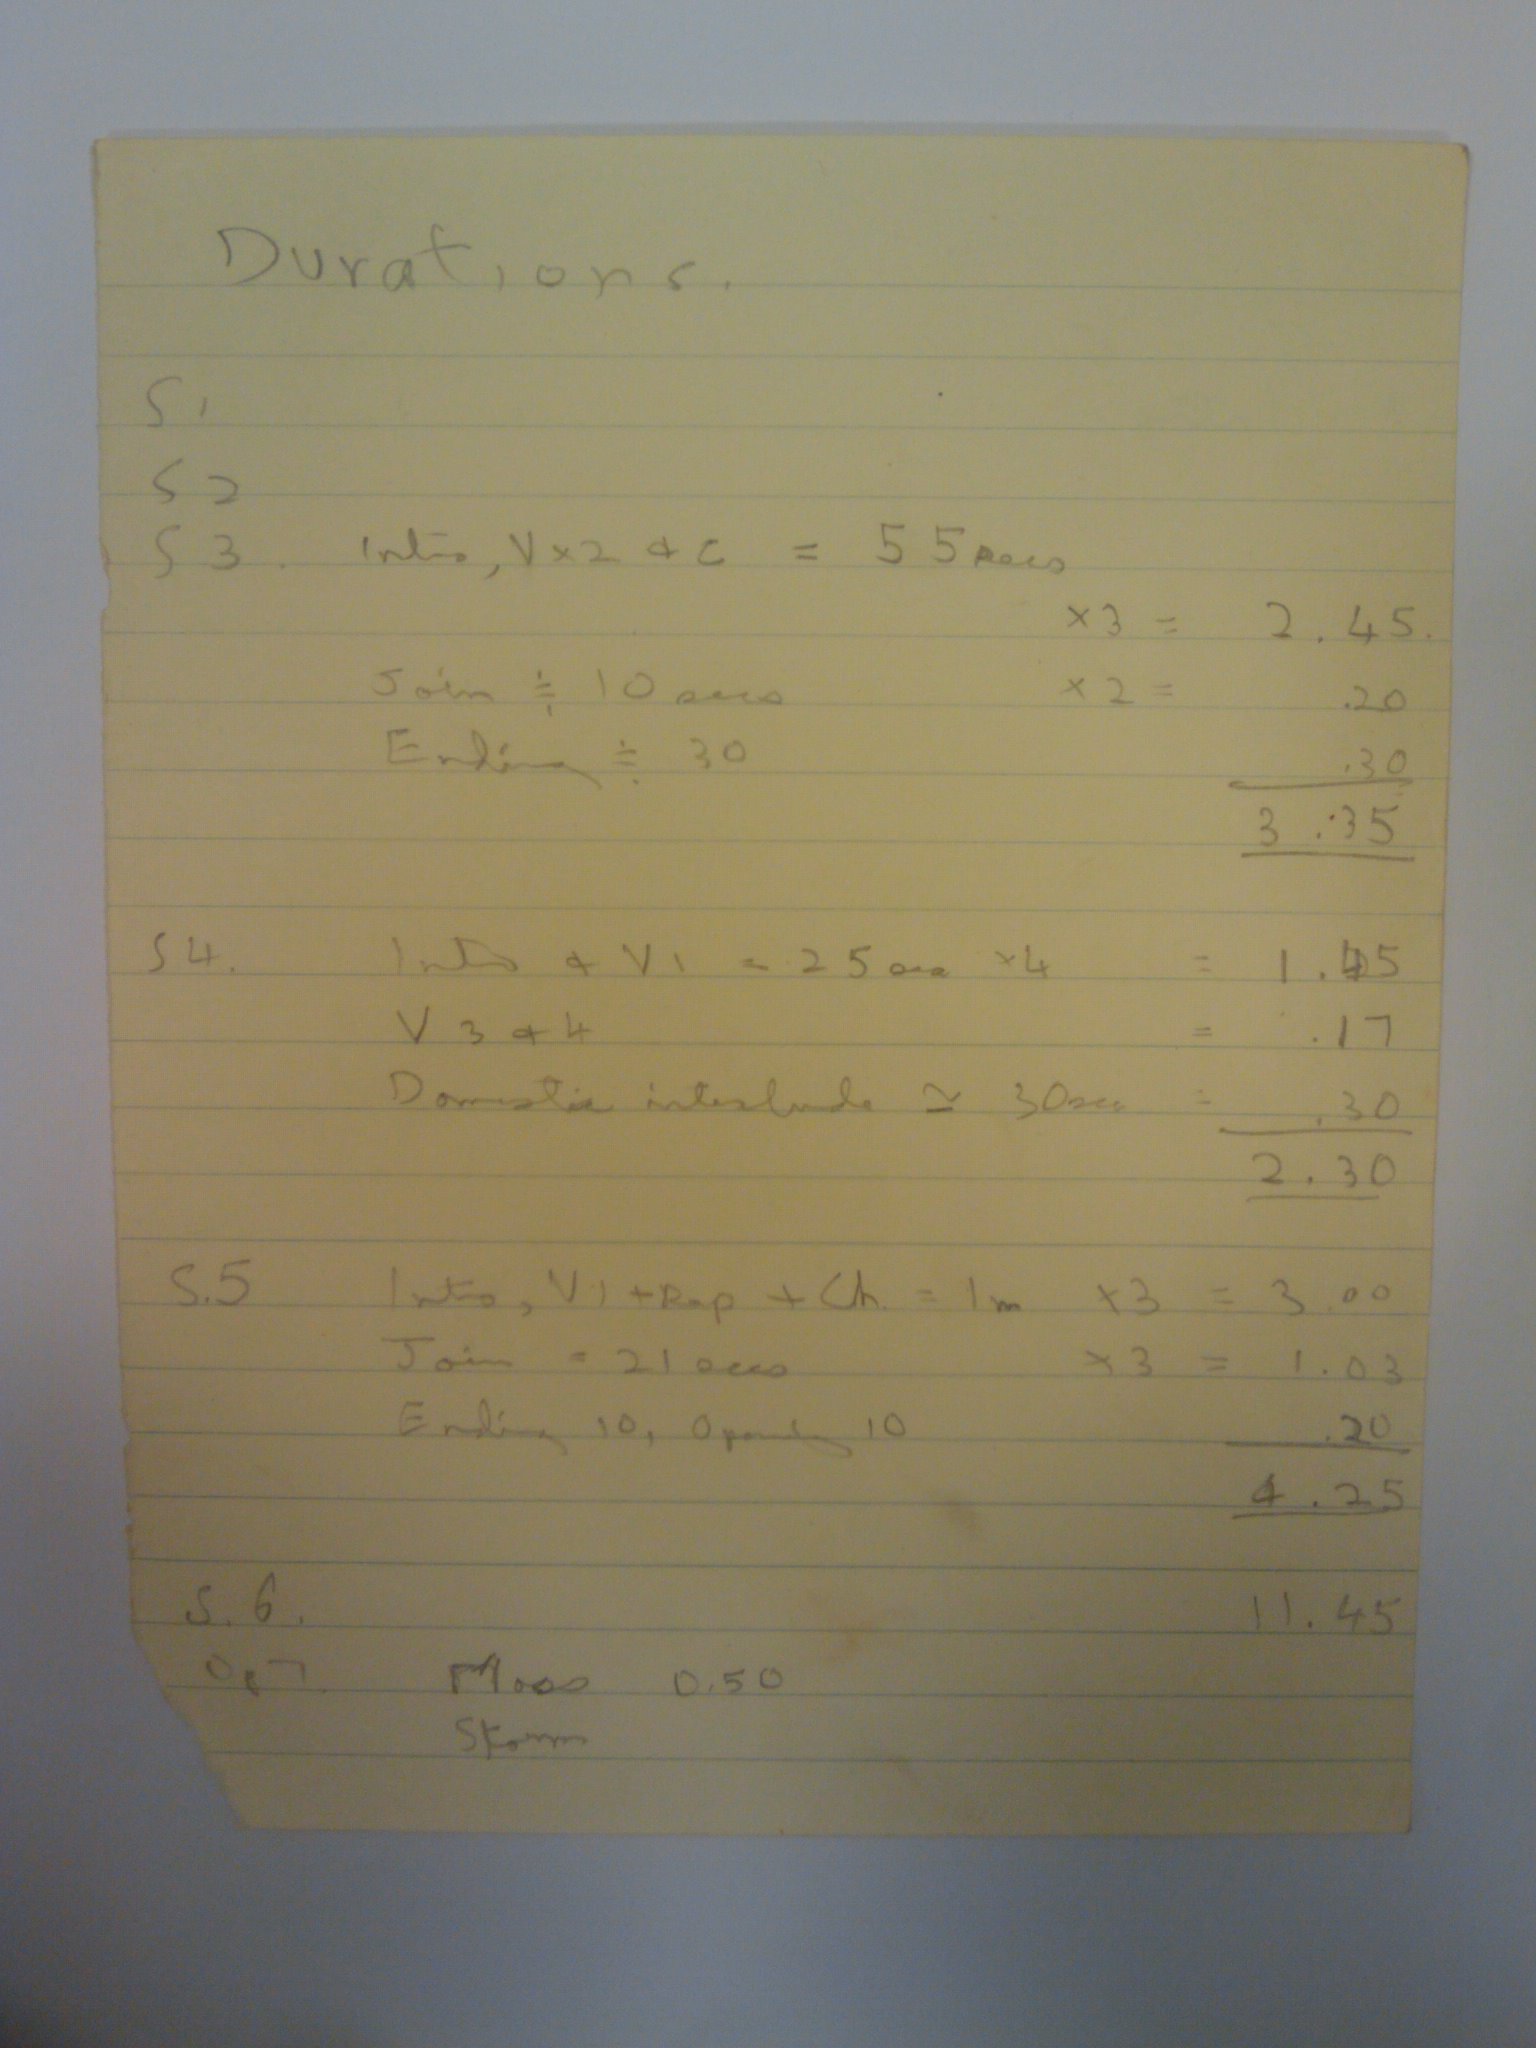 Durations.
S1
S2
S3. Intro, V×2 & C = 55 secs
×3 = 2.45.
Join ≑ 10 secs ×2 = .20
Ending ≑ 30 .30
3.35
S4. Intro & V1 = 25 sec ×4 = 1.45
V 3 & 4 = .17
Domestic interlude ≃ 30 sec = .30
2.30
S.5 Intro, V1 + Rap + Ch. = 1m ×3 = 3.00
Join = 21 secs ×3 = 1.03
Ending 10, Opening 10 .20
4.25
S.6. 11.45
Moss 0.50
Storm